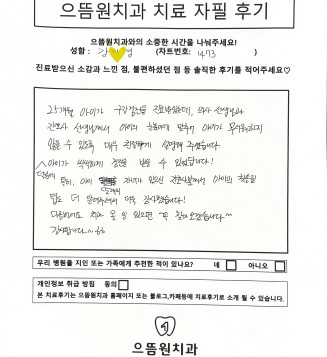 으뜸원치과 치료 자필 후기
으뜸원치과와의 소중한 시간을 나눠주세요!
성함 : 강 영 (차트번호: 1473 )
진료받으신 소감과 느낀 점, 불편하셨던 점 등 솔직한 후기를 적어주세요♡
25개월 아이가 구강검진을 진료받았는데, 의사 선생님과
간호사 선생님께서 아이의 눈높이에 맞추어 아이가 무서워하지
않을 수 있도록 매우 친절하게 설명해 주셨습니다
아이가 씩씩하게 검진을 받을 수 있었답니다!
특히, 아이 치아가
팁도 더 알려주셔서 더욱 감사했습니다!
다음번에도 치과 올 일 있으면 꼭 올게요^^
감사합니다~
우리 병원을 지인 또는 가족에게 추천한 적이 있나요? 네 □ 아니오 □
개인정보 취급 방침 동의 □
본 치료후기는 으뜸원치과 홈페이지 또는 블로그,카페등에 치료후기로 소개 될 수 있습니다.
으뜸원치과